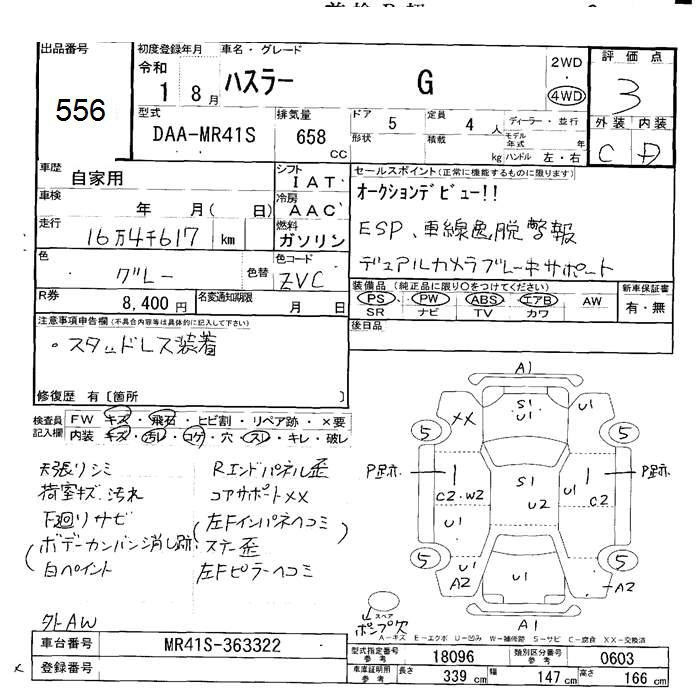 出品番号
556
初度登録年月
令和
1 8月
車名・グレード
ハスラー G
2WD
・
4WD
評価点
3
外装 内装
C D
型式
DAA-MR41S
排気量
658
CC
ドア
5
定員
4 人
ディーラー・並行
形状
積載
kg
モデル年式 年
ハンドル 左・右
車歴
自家用
シフト
IAT
車検
年 月( 日)
冷房
AAC
走行
16万4千617 km
燃料
ガソリン
色
グレー
色替
色コード
ZVC
R券
8,400円
名変通知期限
月 日
セールスポイント(正常に機能するものに限ります)
オークションデビュー!!
ESP、車線逸脱警報
デュアルカメラブレーキサポート
装備品 (純正品に限り○をつけてください)
PS PW ABS エアB AW
SR ナビ TV カワ
新車保証書
有・無
後日品
注意事項申告欄(不具合内容等は具体的に記入して下さい)
・スタッドレス装着
修復歴 有〔箇所 〕
検査員記入欄
FW キズ・飛石・ヒビ割・リペア跡・×要
内装 キズ・汚レ・コゲ・穴・スレ・キレ・破レ
天張りシミ
荷室キズ.汚れ
下廻りサビ
ボデーカンバン消し跡
白ペイント
Rエンドパネル歪
コアサポートXX
(左Fインパネヘコミ)
ステー歪
左Fピラーヘコミ
外AW
A1
S1
U1
XX
U1
5
5
P跡
C2.W2
U1
A2
S1
U2
U1
C2
P跡
5
5
U1
A2
A1
スペア
ポンプ欠
A-キズ E-エクボ U-凹み W-補修跡 S-サビ C-腐食 XX-交換済
車台番号
MR41S-363322
登録番号
型式指定番号
参考
18096
類別区分番号
参考
0603
車庫証明用
参考
長さ
339 cm
幅
147 cm
高さ
166 cm